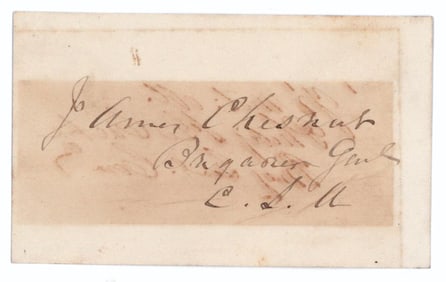 James Chesnut
Brigadier Genl
C. S. A